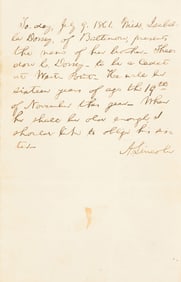 To-day, July 9. 1861. Miss, Isabel-
la Dorsey, of Baltimore, presents
the name of her brother Theo-
dore C. Dorsey, to be a cadet
at West Point. He will be
sixteen years of age the 19th
of November this year. When
he shall be old enough I
should like to oblige his sis-
ter.
A. Lincoln